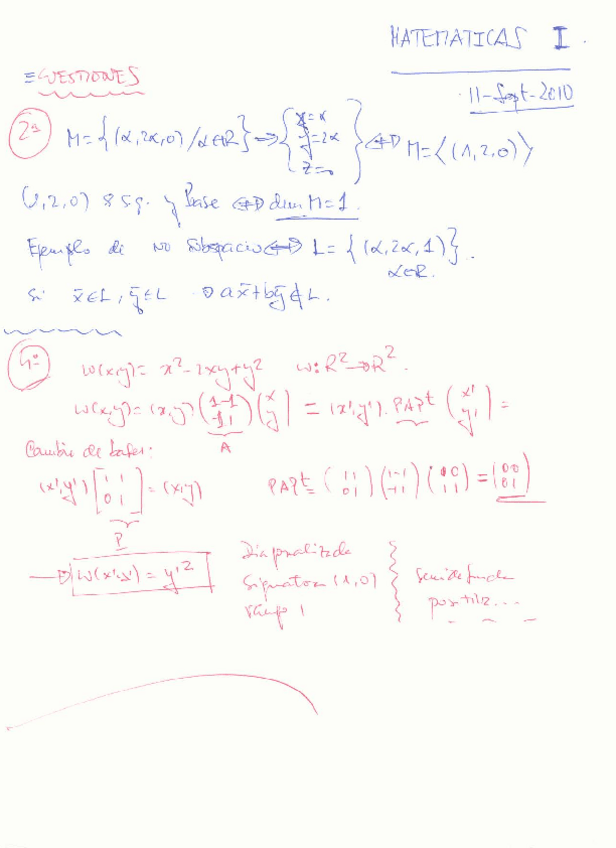 MATEMATICAS I.
≡CUESTIONES
11-Sept-2010
2ª M={(α,2α,0)/α∈R}⇒{x=α y=2α z=0}⇔M=⟨(1,2,0)⟩
(1,2,0) es s.g. y Base ⇔ dim M=1.
Ejemplo de no subespacio⇔L={(α,2α,1)}.
α∈R.
Si x̄∈L, ȳ∈L ⇒ax̄+bȳ∉L.
4ª
w(x,y)= x²-2xy+y² w:R²→R².
w(x,y)=(x,y)(1 -1 / -1 1)(x / y) = (x',y').PAPᵗ (x' / y') =
A
Cambio de bases:
(x',y')[1 1 / 0 1]=(x,y) PAPᵗ=(1 1 / 0 1)(1 -1 / -1 1)(1 0 / 1 1)=(0 0 / 0 1)
P
→ w(x',y')=y'²
Diagonalizada
Signatura (1,0)
rango 1
Semidefinida
positiva...